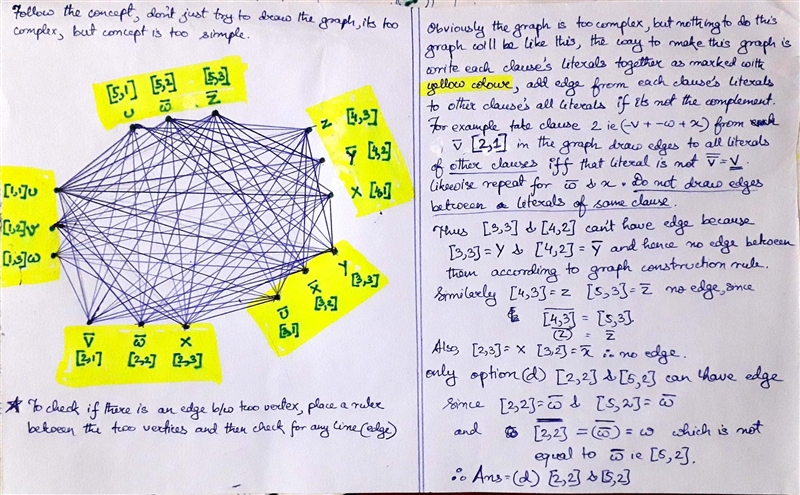 Follow the concept, don't just try to draw the graph, its too
complex, but concept is too simple.
[5,1] [5,2] [5,3]
U ω̅ Z̅
Z [4,3]
Y̅ [4,2]
X [4,1]
[1,1] U
[1,2] V
[1,3] ω
Y [3,3]
X̅ [3,2]
U̅ [3,1]
V̅ ω̅ X
[2,1] [2,2] [2,3]
★ To check if there is an edge b/w two vertex, place a ruler
between the two vertices and then check for any line (edge)
Obviously the graph is too complex, but nothing to do this
graph will be like this, the way to make this graph is
write each clause's literals together as marked with
yellow colour, add edge from each clause's literals
to other clause's all literals if its not the complement.
For example take clause 2 ie (-v + -ω + x) from
V̅ [2,1] in the graph draw edges to all literals
of other clauses iff that literal is not V̿ = V.
Likewise repeat for ω̅ & x. Do not draw edges
between literals of same clause.
Thus [3,3] & [4,2] can't have edge because
[3,3] = Y & [4,2] = Y̅ and hence no edge between
them according to graph construction rule.
Similarly [4,3] = z [5,3] = z̅ no edge, since
[4,3]̅ = [5,3]
(z)̅ = z̅
Also, [2,3] = x [3,2] = x̅ ∴ no edge.
only option (d) [2,2] & [5,2] can have edge
since [2,2] = ω̅ & [5,2] = ω̅
and [2,2]̅ = (ω̅)̅ = ω which is not
equal to ω̅ ie [5,2].
∴ Ans = (d) [2,2] & [5,2]